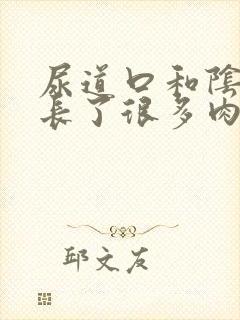 尿道口和陰
長了很多肉
邱文友